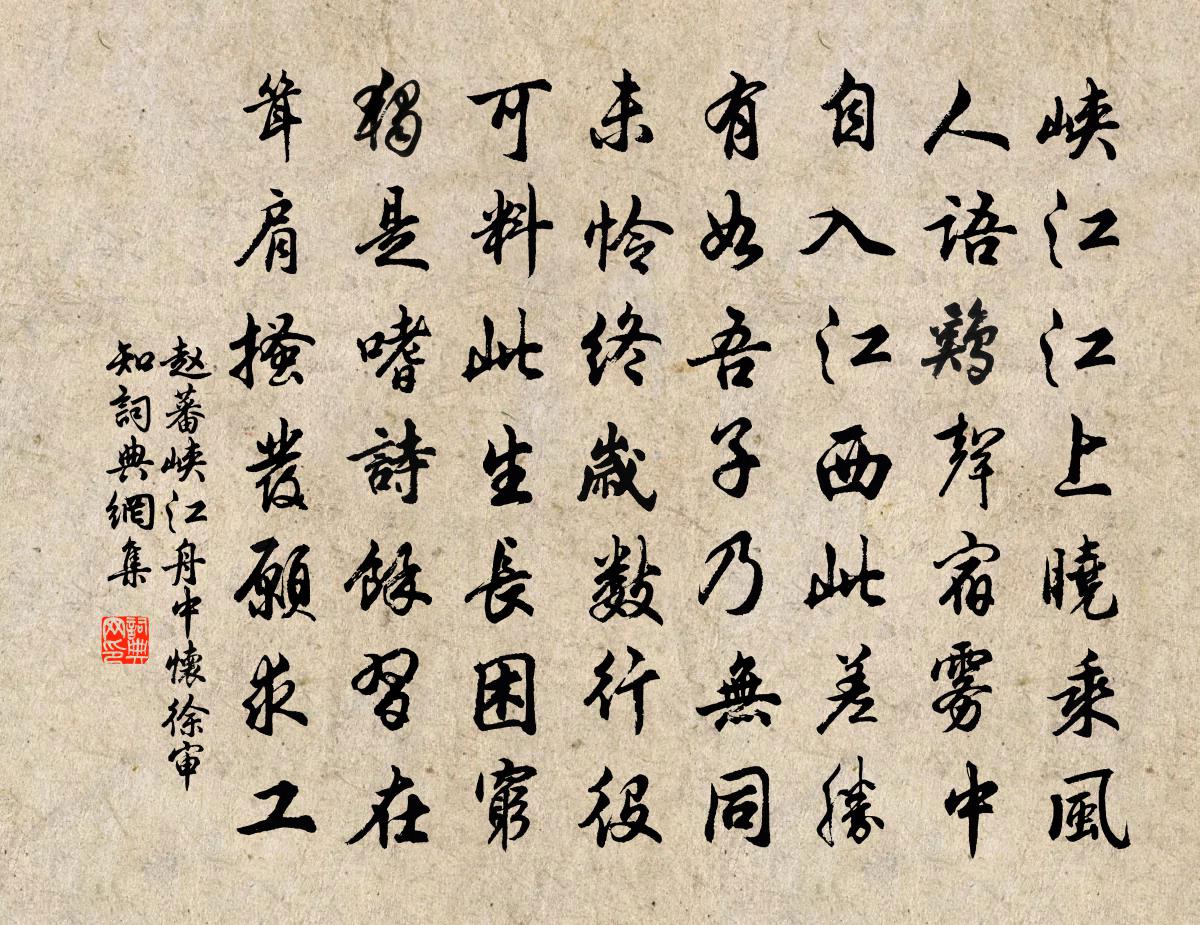 峽江江上曉乘風
人語鷄聲宿雾中
自入江西此差勝
有如吾子乃無同
未憐終歲數行役
可料此生長困窮
獨是嗜詩餘習在
耸肩搔發願求工
赵蕃峽江舟中懷徐审
知詞典網集
詞典
网印